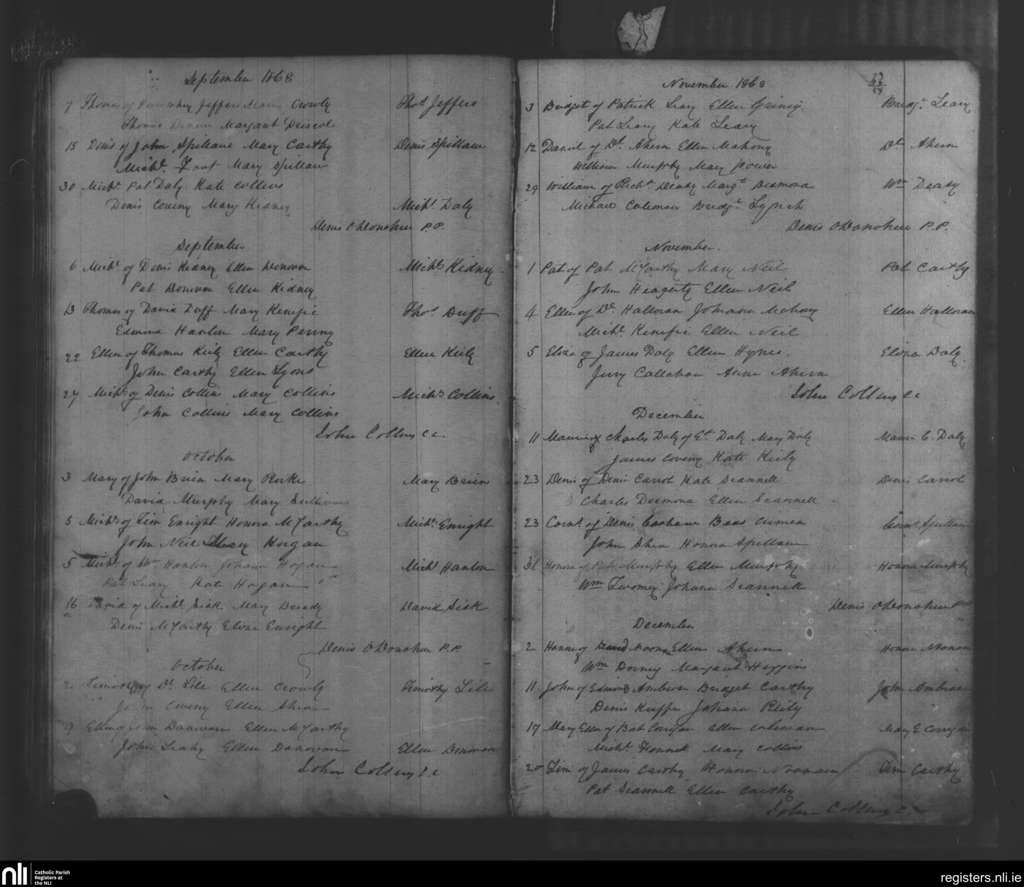 September 1868
7 Thomas of Jeffers Crowly Thos Jeffers
Thomas Margaret Driscol
15 Denis of John Spillane Mary Carthy Denis Spillane
Michl. Mary Spillane
30 Michl Pat Daly Kate Collins
Denis Coveny Mary Kidney Michl Daly
Denis O'Donohue P.P.
September
6 Michl of Denis Kidney Ellen Donovan Michl Kidney
Pat Donovan Ellen Kidney
13 Thomas of David Duff Mary Kenefic Thos Duff
Edmond Hanlon Mary Penny
22 Ellen of Thomas Kiely Ellen Carthy Ellen Kiely
John Carthy Ellen Lyons
27 Michl of Denis Collins Mary Collins Michl Collins
John Collins Mary Collins
John Collins C.C.
October
3 Mary of John Brien Mary Mary Brien
David Murphy Mary Sullivan
5 Michl of Tim Enright Honora McCarthy Michl Enright
John Neil Horgan
5 Michl of Wm Hanlon Johana Hogan Michl Hanlon
Pat Leary Kate Horgan
16 David of Michl Sisk Mary Deady David Sisk
Denis McCarthy Enright
Denis O'Donohue P.P.
October
2 Timothy of Ds. Lile Ellen Crowly Timothy Lile
John Coveny Ellen
9 Ellen of Donovan Ellen McCarthy
John Leahy Ellen Donovan Ellen Donovan
John Collins C.C.
27
November 1868
3 Bridget of Patrick Leary Ellen Bridgt. Leary
Pat Leary Kate Leary
12 Daniel of Dl. Ahern Ellen Mahony Dl. Ahern
William Murphy Mary Power
29 William of Richd Deady Margt Desmond Wm Deady
Michael Coleman Bridgt. Lynch
Denis O'Donohue P.P.
November
1 Pat of Pat McCarthy Mary Neil Pat Carthy
John Heagerty Ellen Neil
4 Ellen of Ds. Halloran Johana Mahony Ellen Halloran
Michl Kenefic Ellen Neil
5 Eliza of James Daly Ellen Hynes Eliza Daly
Jerry Callahan Anne Ahern
John Collins CC
December
11 Maurice of Charles Daly of Daly Mary Daly Maur. C. Daly
James Coveny Kate Kiely
23 Denis of Denis Carrol Kate Scannell Denis Carrol
Charles Desmond Ellen Scannell
23 of Denis Spillane
John Shea Honora Spillane
31 Honora of Patk Murphy Ellen Murphy Honora Murphy
Wm Twomey Johana Scannell
Denis O'Donohue
December
2 Honora of David Ellen Ahern Honor
Wm Dorney Margaret Higgin
11 John of Edmond Ambrose Bridget Carthy John Ambrose
Denis Johana Kiely
17 Mary Ellen of Bat Ellen Coleman Mary E
Michl Mary Collins
20 Tim of James Carthy Honora Tim Carthy
Pat Scannell Ellen Carthy
John Collins C.C.
nli Catholic Parish
Registers at
the NLI
registers.nli.ie